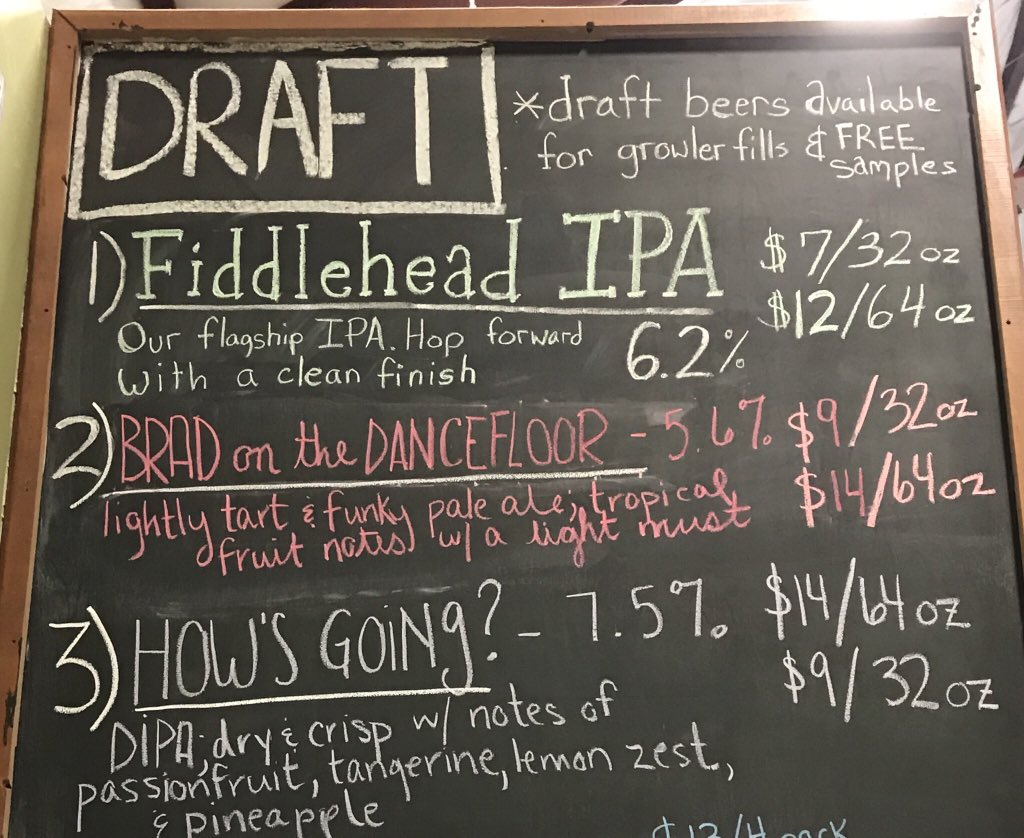 DRAFT
*draft beers available
for growler fills & FREE
samples
1) Fiddlehead IPA
$7/32 oz
$12/64 oz
Our flagship IPA. Hop forward
with a clean finish
6.2%
2) BRAD on the DANCEFLOOR - 5.6% $9/32oz
$14/64oz
lightly tart & funky pale ale; tropical
fruit notes w/ a light must
3) HOW'S GOiNg? - 7.5% $14/64 oz
$9/32 oz
DIPA; dry & crisp w/ notes of
passionfruit, tangerine, lemon zest,
& pineapple